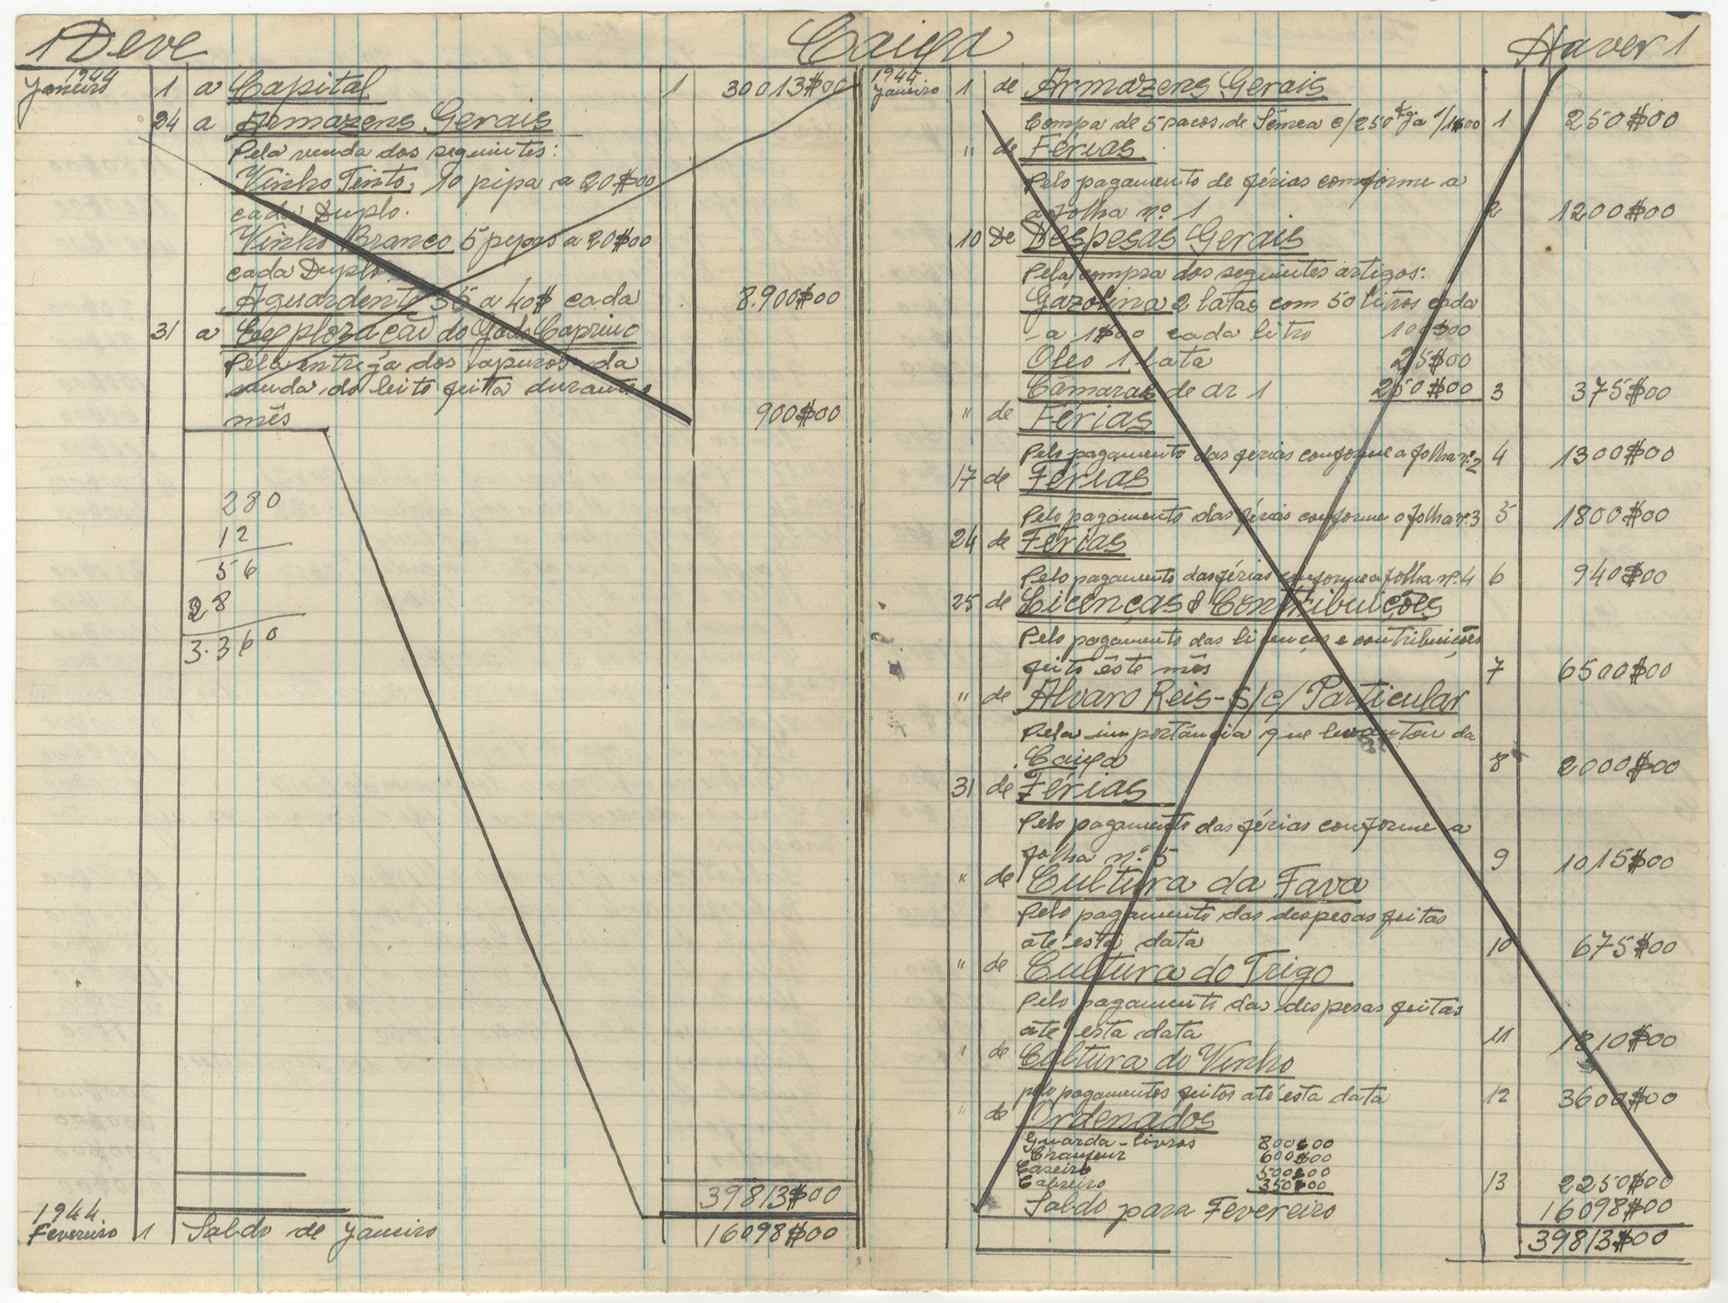 1 Deve
Caixa
Haver 1
1944
Janeiro 1 a Capital 1 30013$00
24 a Armazens Gerais
Pela venda dos seguintes:
Vinho Tinto, 10 pipa a 20$00
cada Duplo.
Vinho Branco 5 pipas a 20$00
cada Duplo
Aguardente 35 a 40$ cada 8.900$00
31 a Exploração do Gado Caprino
Pela entrega dos apuros da
venda do leite feita durante
mês 900$00
280
12
56
28
3.360
39813$00
1944
Fevereiro 1 Saldo de Janeiro 16098$00
1944
Janeiro 1 de Armazens Gerais
Compa de 5 sacos de Sêmea c/250 1 250$00
" de Férias
Pelo pagamento de férias comforme a
a folha nº 1 2 1200$00
10 De Despesas Gerais
Pela compra dos seguintes artigos:
Gazolina 2 latas com 50 litros cada
a 1$00 cada litro 100$00
Oleo 1 lata 25$00
Camaras de ar 1 250$00 3 375$00
" de Férias
Pelo pagamento das férias conforme a folha nº 2 4 1300$00
17 de Férias
Pelo pagamento das férias conforme a folha nº 3 5 1800$00
24 de Férias
Pelo pagamento das férias conforme a folha nº 4 6 940$00
25 de Licenças & Contribuições
Pelo pagamento das licenças e contribuições
feito êste mês 7 6500$00
" de Alvaro Reis-S/c/ Particular
Pela importância que levantou da
Caixa 8 2000$00
31 de Férias
Pelo pagamento das férias conforme a
folha nº 5 9 1015$00
" de Cultura da Fava
Pelo pagamento das despesas feitas
até esta data 10 675$00
" de Cultura do Trigo
Pelo pagamento das despesas feitas
até esta data 11 1810$00
" de Cultura do Vinho
pelo pagamentos feitos até esta data 12 3600$00
" de Ordenados
Guarda-livros 800$00
Chaufeur 600$00
Caseiro 500$00
Cabreiro 350$00 13 2250$00
Saldo para Fevereiro 16098$00
39813$00